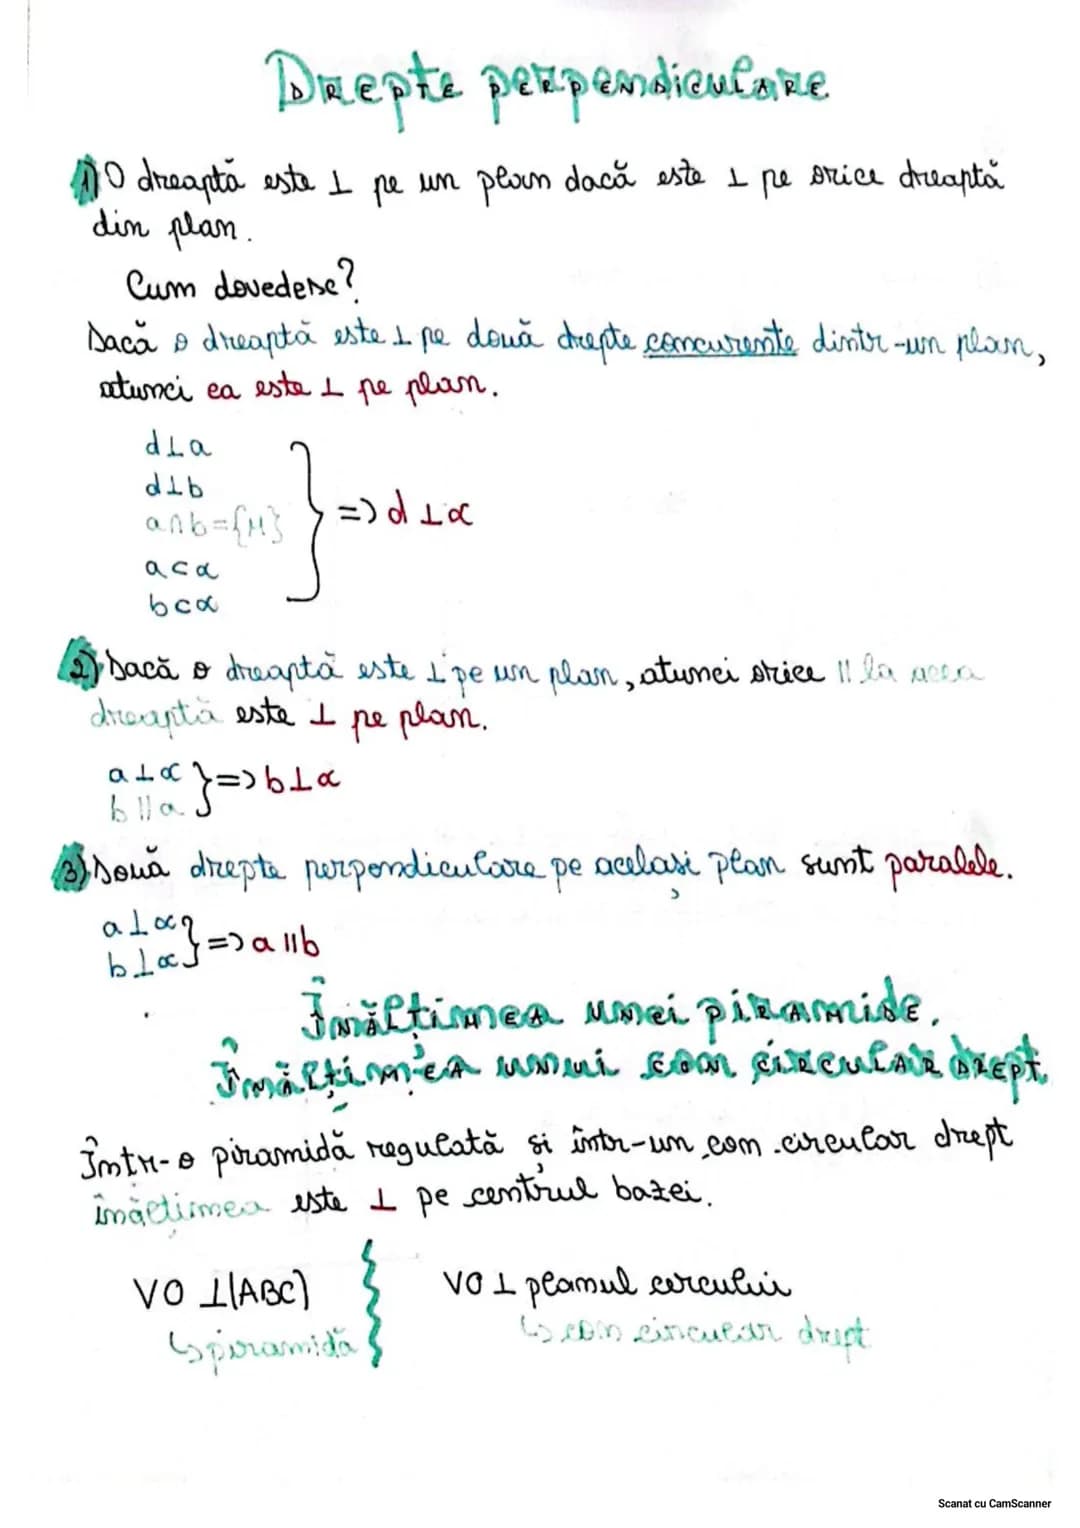 Drepte perpendiculare
1) O dreaptă este ⊥ pe un plan dacă este ⊥ pe orice dreaptă
din plan.
Cum dovedesc?
Dacă o dreaptă este ⊥ pe două drepte concurente dintr-un plan,
atunci ea este ⊥ pe plan.
d⊥a
d⊥b
a∩b={M}
a⊂α
b⊂α
=> d ⊥α
2) Dacă o dreaptă este ⊥ pe un plan, atunci orice || la acea
dreaptă este ⊥ pe plan.
a⊥α
b||a
} => b⊥α
3) Două drepte perpendiculare pe același plan sunt paralele.
a⊥α
b⊥α
} => a||b
Înălțimea unei piramide.
Înălțimea unui con circular drept.
Într-o piramidă regulată și într-un con circular drept
înălțimea este ⊥ pe centrul bazei.
VO ⊥(ABC)
↳ piramidă
VO ⊥ planul cercului
↳ con circular drept
Scanat cu CamScanner